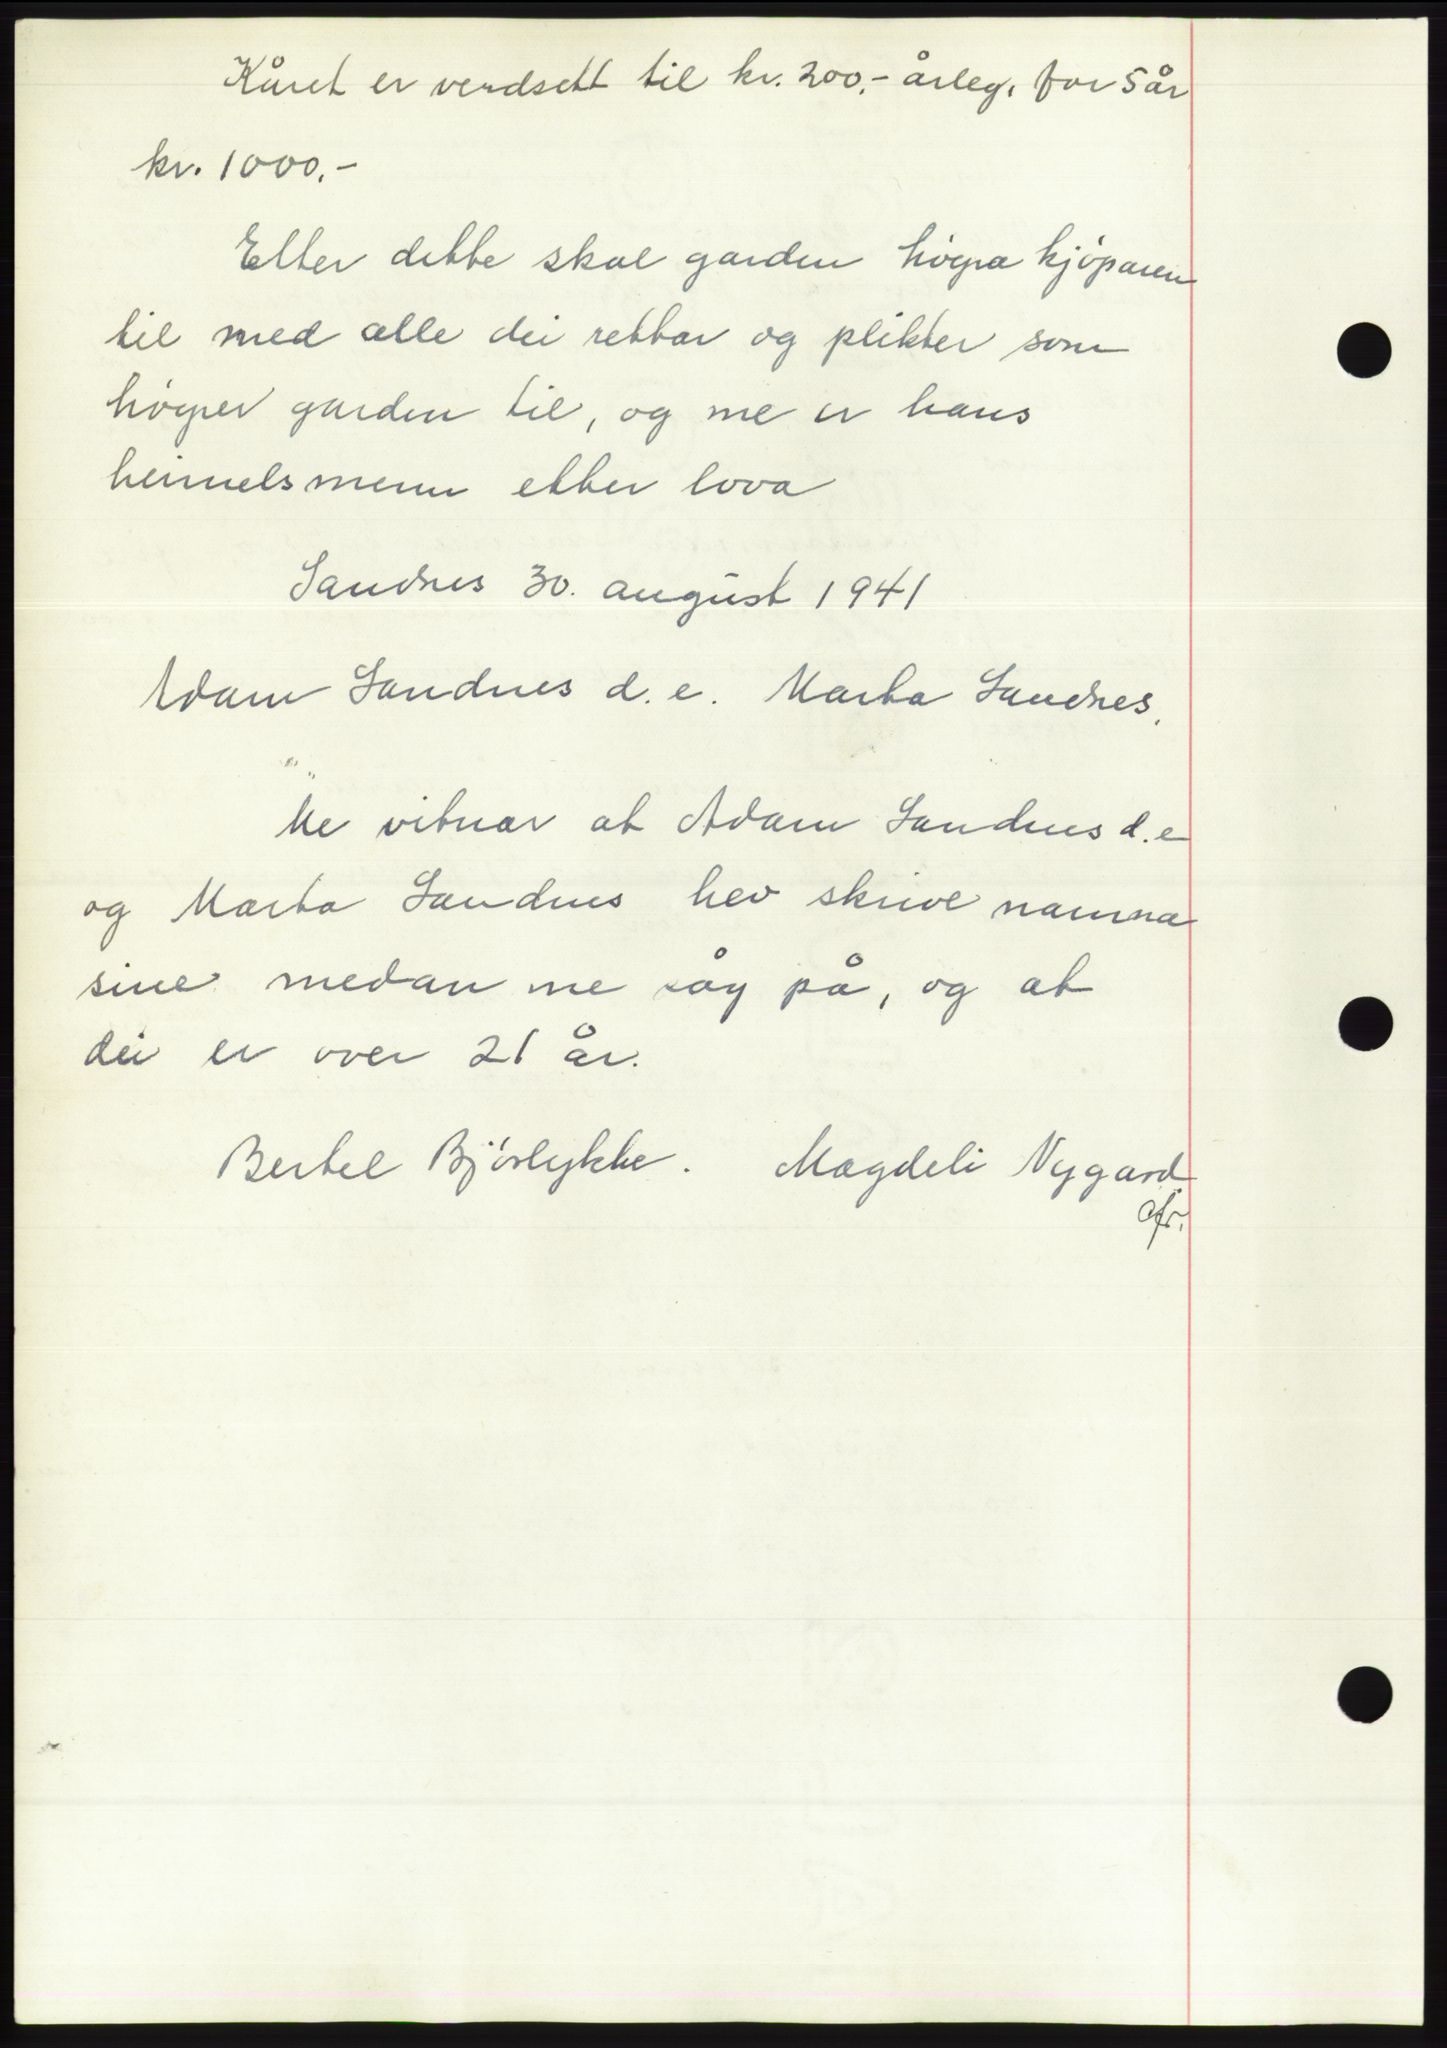 Kåret er verdsett til kr. 200,- årleg, for 5 år
kr. 1000,-
Etter dette skal garden höyra kjöparen
til med alle dei rettar og plikter som
höyrer garden til, og me er hans
heimelsmenn etter lova
Sandnes 30. august 1941
Adam Sandnes d. e. Marta Sandnes.
Me vitnar at Adam Sandnes d. e
og Marta Sandnes hev skrive namna
sine medan me såg på, og at
dei er over 21 år.
Bertel Bjørlykke. Magdeli Nygard
afr.